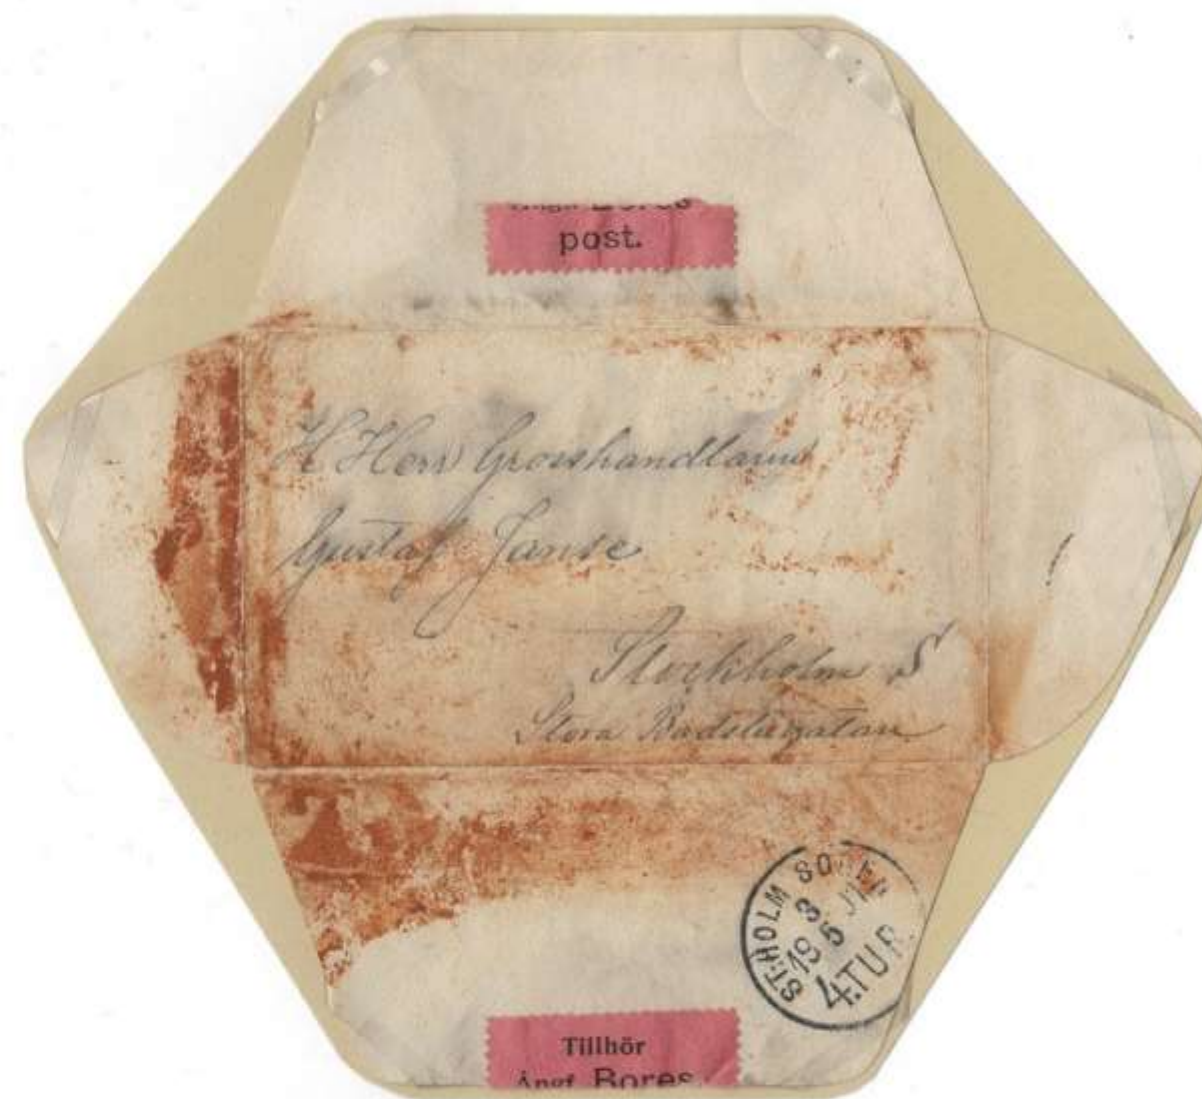 post.
H Herr Grosshandlaren
Gustaf Janse
Stockholm S
Stora Badstugatan
ST:HOLM
3
19 5
4.TUR.
Tillhör
Ångf. Bores